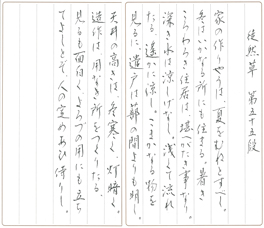 徒然草　第五十五段
家の作りやうは、夏をむねとすべし。
冬はいかなる所にも住まる。暑き
ころわろき住居は、堪へがたき事なり。
深き水は涼しげなし。浅くて流れ
たる、遥かに涼し。こまかなる物を
見るに、遣戸は蔀の間よりも明し。
天井の高きは、冬寒く、灯暗し。
造作は、用なき所をつくりたる、
見るも面白く、よろづの用にも立ち
てよしとぞ、人の定めあひ侍りし。